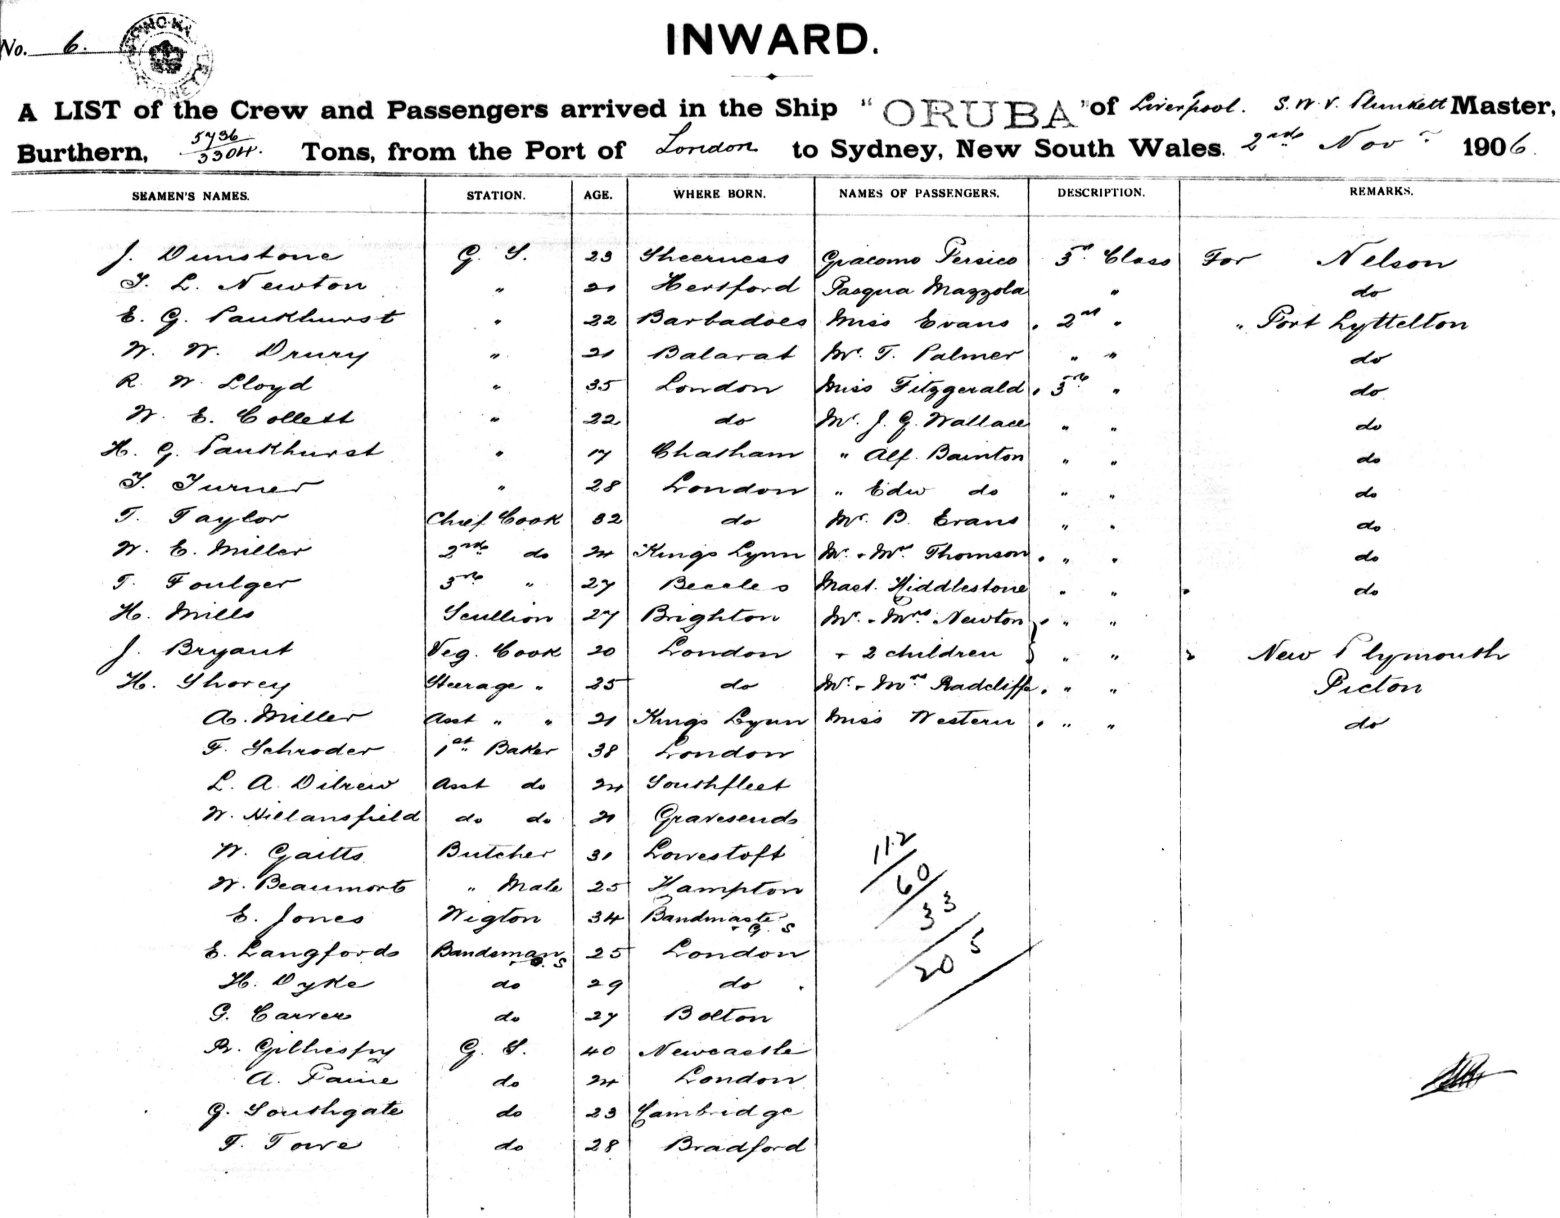 No. 6.
INWARD.
A LIST of the Crew and Passengers arrived in the Ship "ORUBA" of Liverpool. S. W. V. Plunkett Master,
Burthern, 5736/3304. Tons, from the Port of London to Sydney, New South Wales. 2nd Novr 1906.
SEAMEN'S NAMES. STATION. AGE. WHERE BORN. NAMES OF PASSENGERS. DESCRIPTION. REMARKS.
J. Dunstone G. S. 23 Sheerness Giacomo Persico 3rd Class For Nelson
T. L. Newton " 21 Hertford Pasqua Mazzola " do
E. G. Pankhurst " 22 Barbadoes Miss Evans 2nd " " Port Lyttelton
W. W. Drury " 21 Balarat Mr. T. Palmer " " do
R. W. Lloyd " 35 London Miss Fitzgerald 3rd " do
W. E. Collett " 22 do Mr. J. G. Wallace " " do
H. G. Pankhurst " 17 Chatham " Alf. Bainton " " do
T. Turner " 28 London " Edw do " " do
T. Taylor Chief Cook 32 do Mr. B. Evans " " do
W. E. Miller 2nd do 24 Kings Lynn Mr. & Mrs Thomson " " do
T. Foulger 3rd " 27 Beccles Mast. Hiddlestone " " do
H. Mills Scullion 27 Brighton Mr. & Mrs Newton " "
J. Bryant Veg. Cook 20 London + 2 children " " New Plymouth
H. Shorey Steerage " 25 do Mr. & Mrs Radcliffe " " Picton
A. Miller Asst " " 21 Kings Lynn Miss Western " " do
F. Schroder 1st Baker 38 London
L. A. Dilrew Asst do 24 Southfleet
W. Hillansfield do do 21 Gravesend
W. Gaitts Butcher 31 Lowestoft
W. Beaumont " Mate 25 Hampton
E. Jones Wigton 34 Bandmaster & G. S
E. Langford Bandsman & G. S 25 London
H. Dyke do 29 do
G. Carver do 27 Bolton
R. Gilhespy G. S. 40 Newcastle
A. Paine do 24 London
G. Southgate do 23 Cambridge
F. Towe do 28 Bradford
112
60
33
205